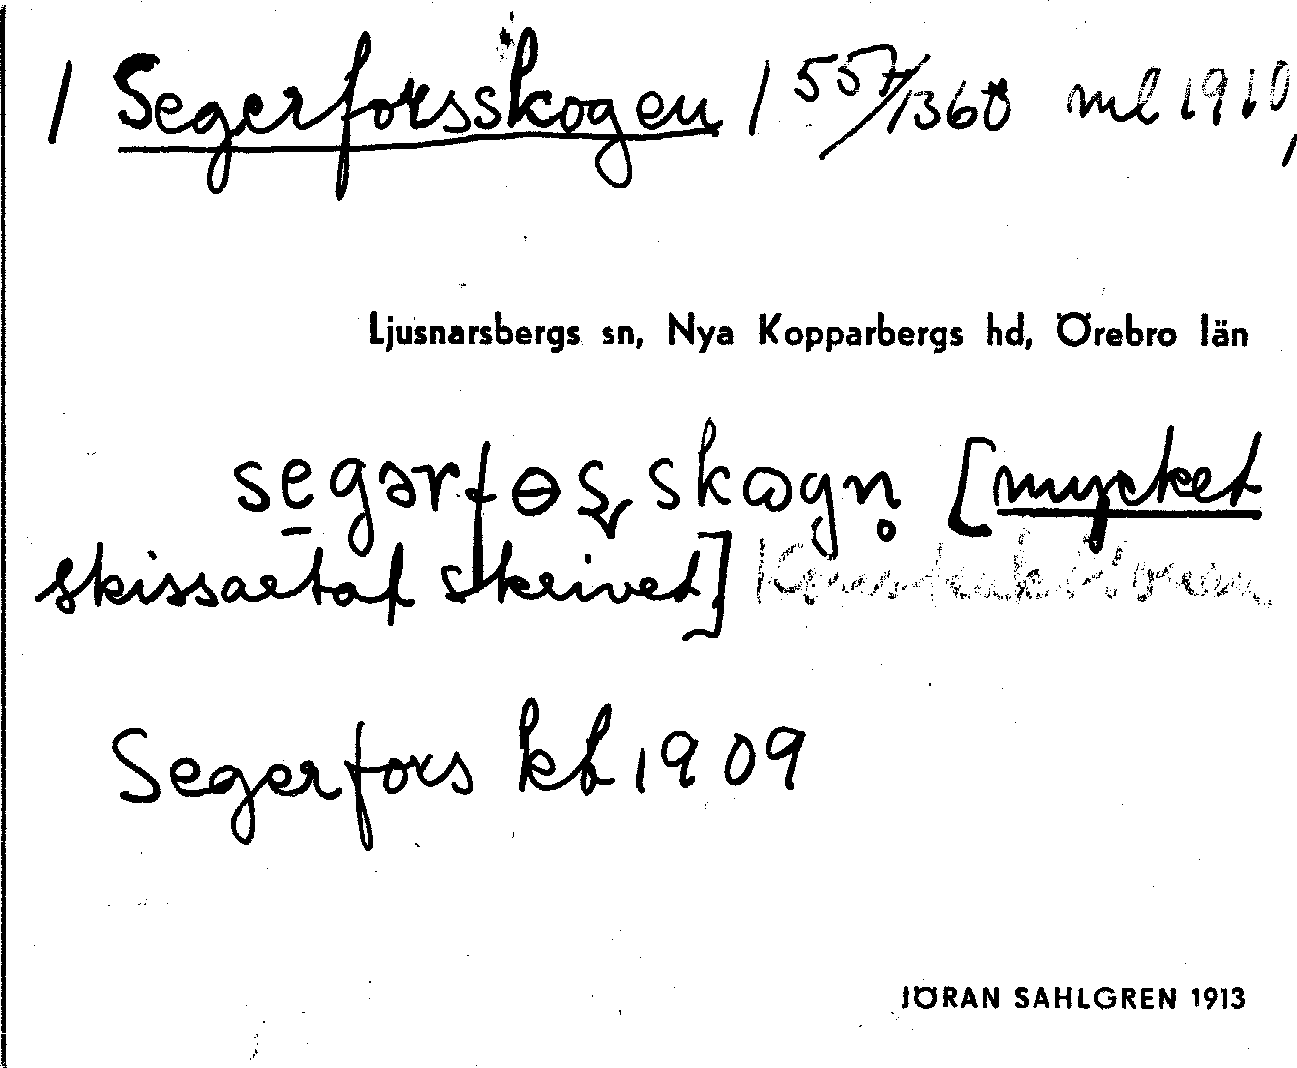 / Segerforsskogen / 557/1368 ml 1910,
Ljusnarsbergs sn, Nya Kopparbergs hd, Örebro län
segərfɵʂskωgn̥ [mycket
skissartat skrivet]
Segerfors kt 1909
JÖRAN SAHLGREN 1913